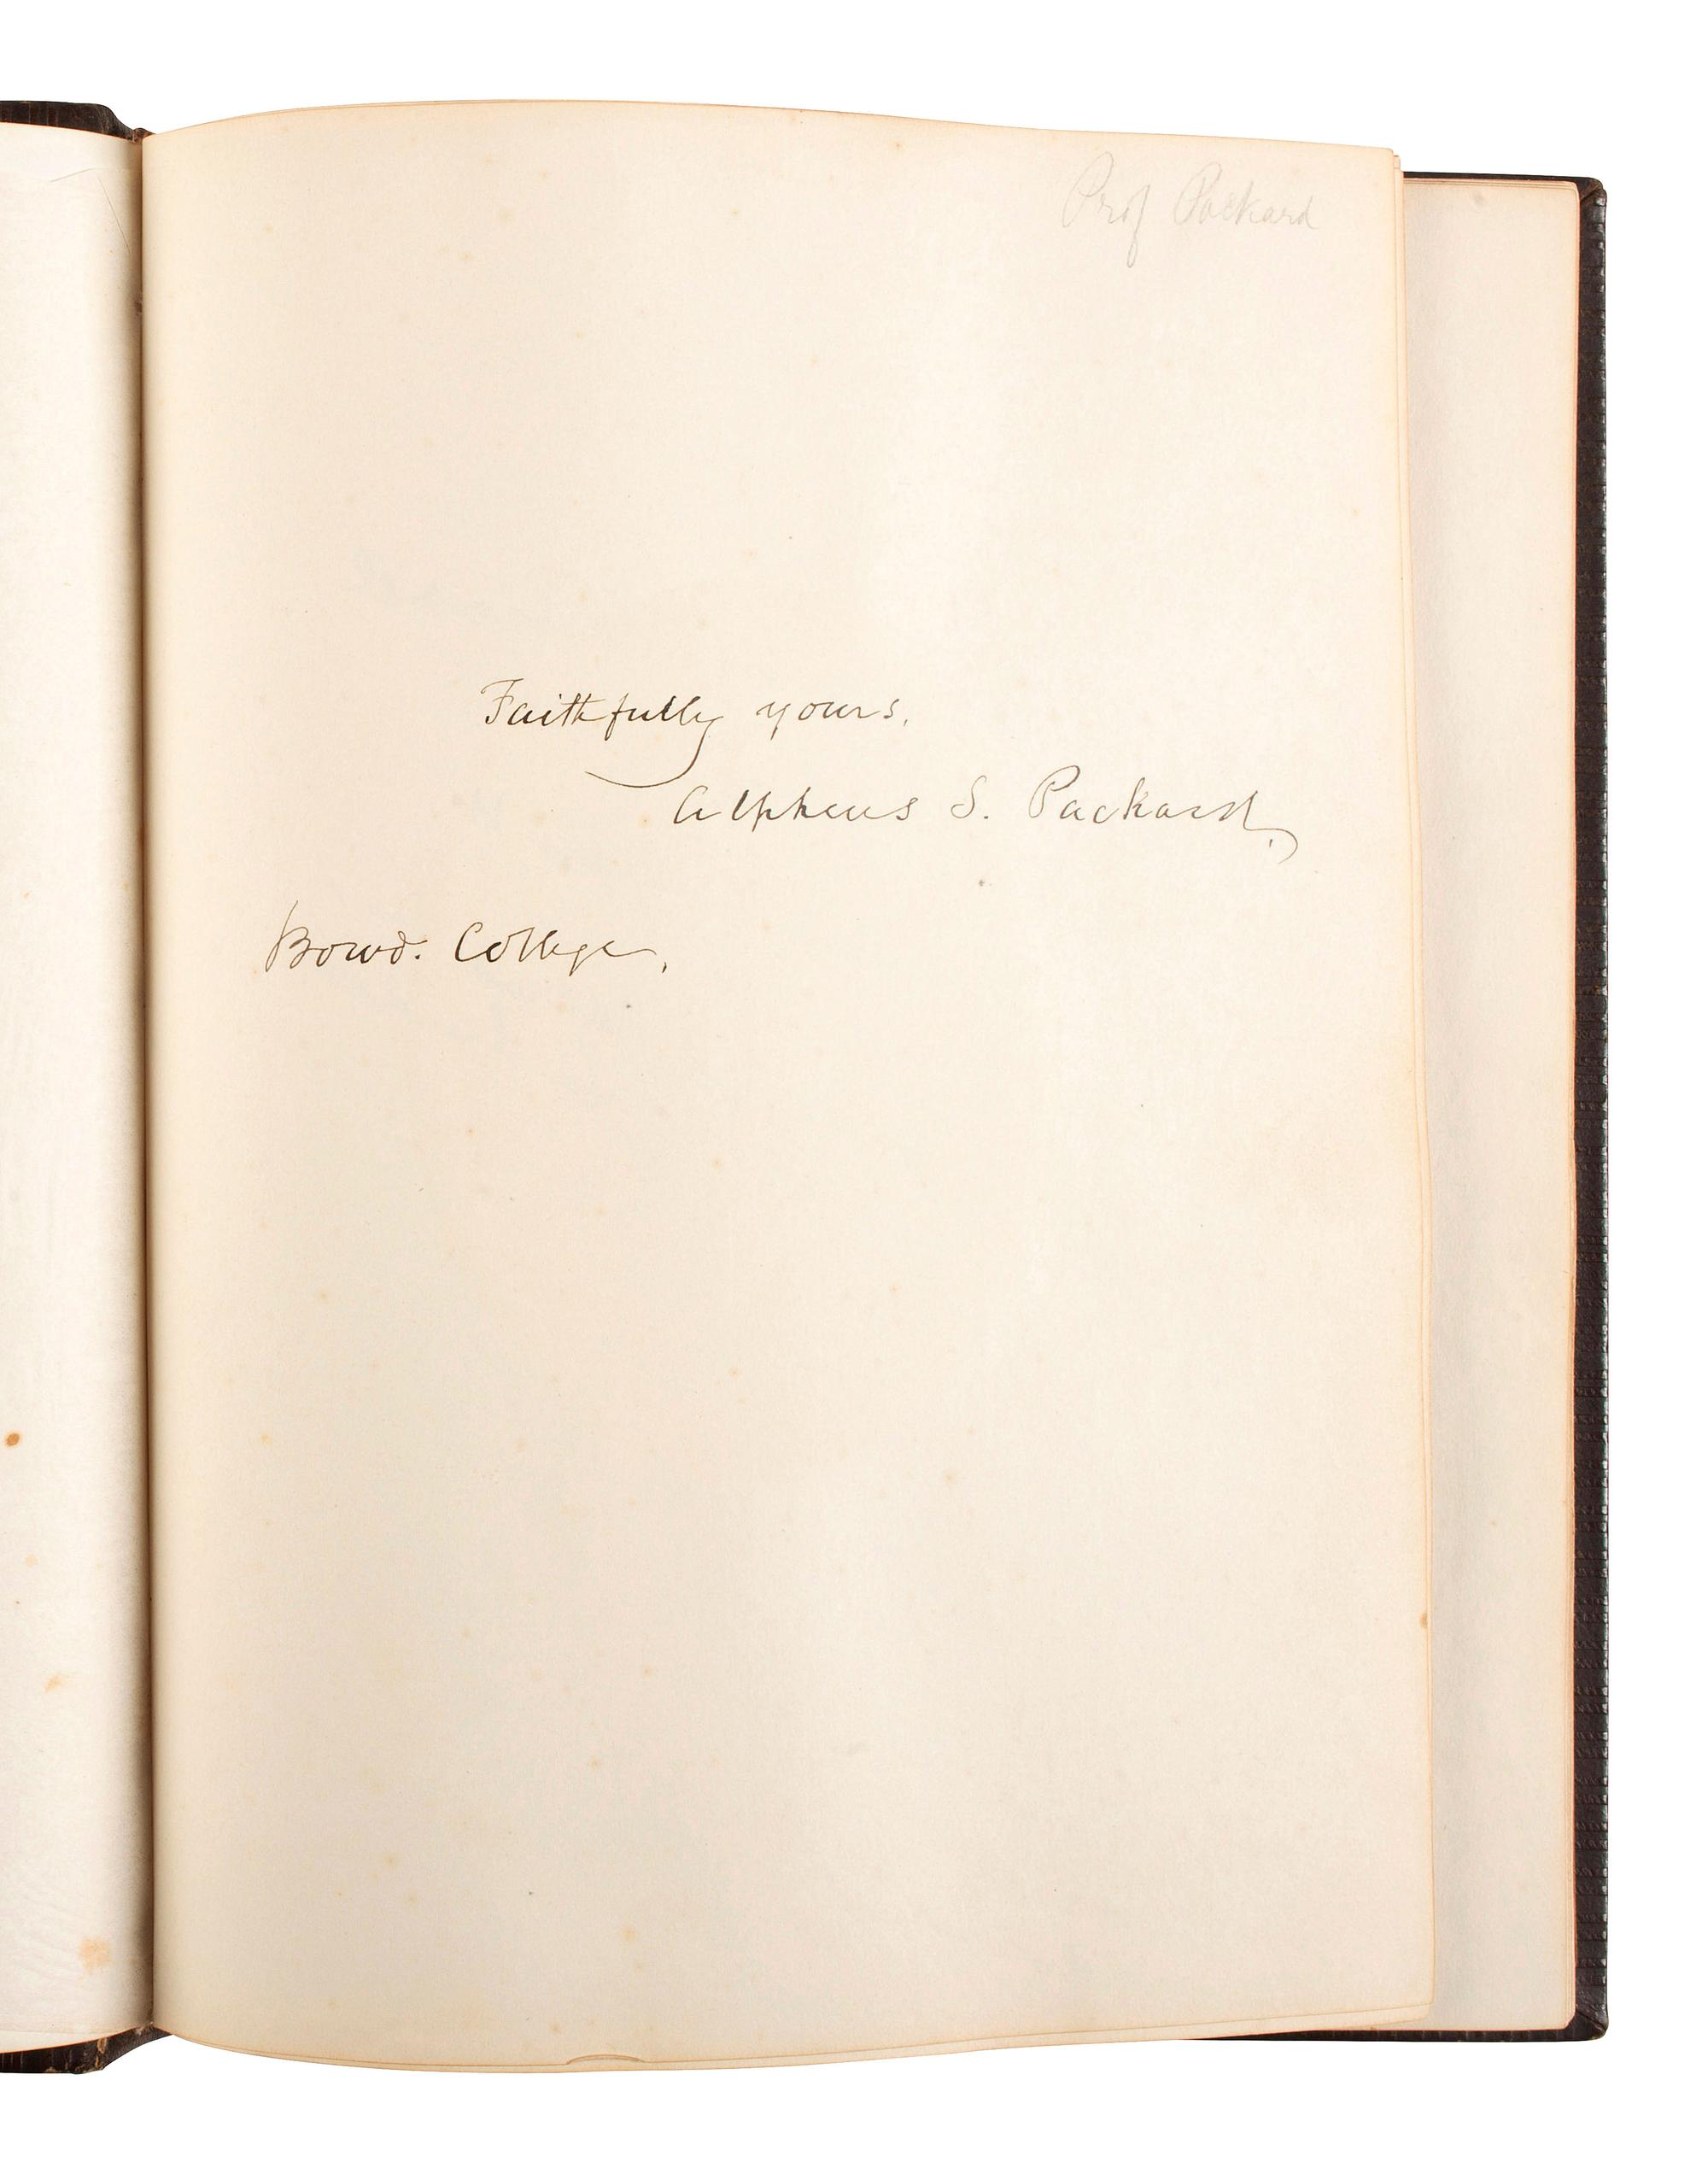 Prof Packard
Faithfully yours,
Alpheus S. Packard.
Bowd. College,